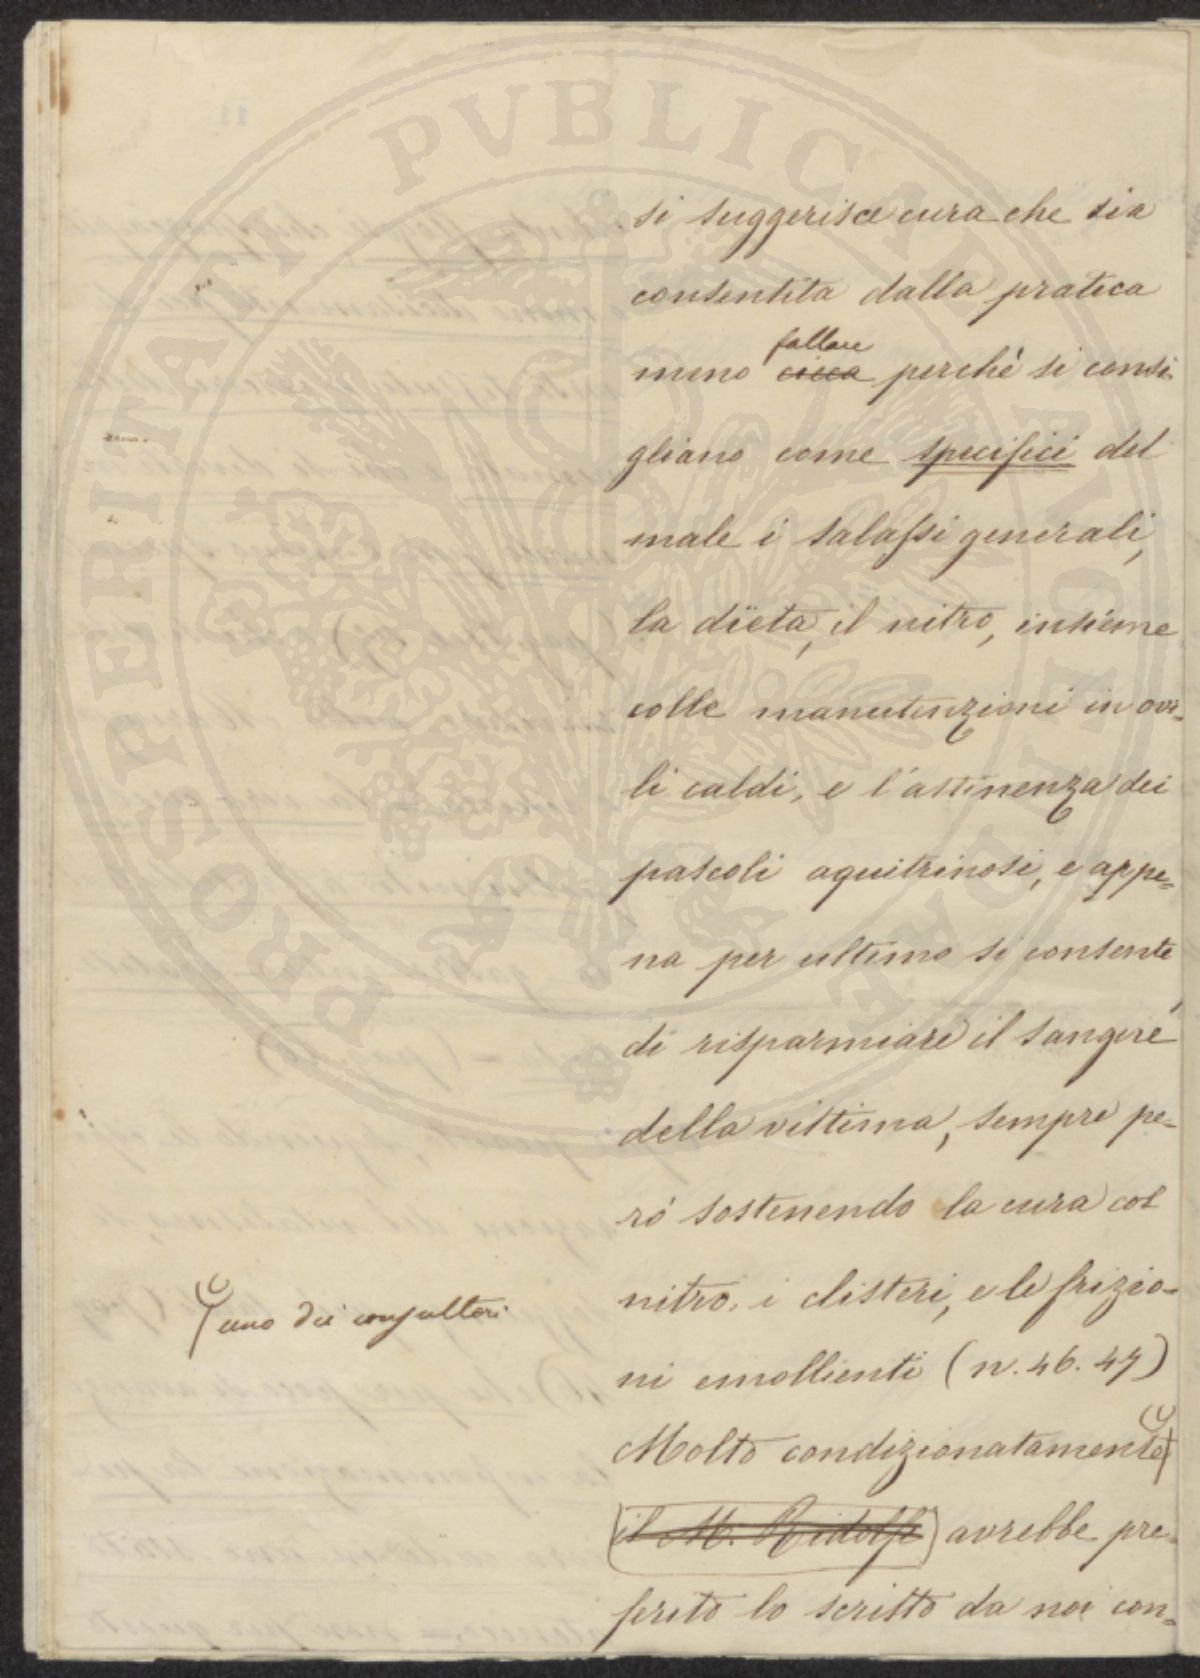 si suggerisce cura che sia
consentita dalla pratica
fallace
meno cieca perchè si consi-
gliano come specifici del
male i salassi generali,
la dïeta, il nitro, insieme
colle manutenzioni in ovi-
li caldi, e l'astinenza dei
pascoli aquitrinosi, e appe-
na per ultimo si consente,
di risparmiare il sangue
della vittima, sempre pe-
rò sostenendo la cura col
nitro, i clisteri, e le frizio-
ni emollienti (n. 46. 47)
uno dei consultori
Molto condizionatamente
il M. Ridolfi avrebbe pre-
ferito lo scritto da noi con-
PROSPERITATI PVBLICAE AVGENDAE